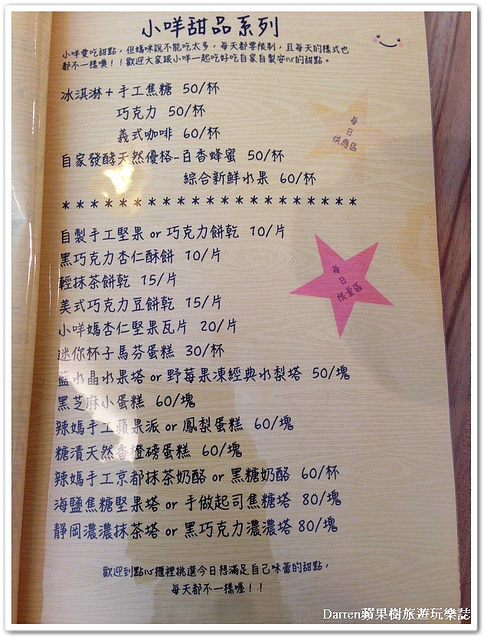 小咩甜品系列
小咩愛吃甜點，但媽咪說不能吃太多，每天都要限制，且每天的樣式也
都不一樣噢！！歡迎大家跟小咩一起吃好吃自家自製安心的甜點。
冰淇淋+手工焦糖 50/杯
巧克力 50/杯
義式咖啡 60/杯
自家發酵天然優格-百香蜂蜜 50/杯
綜合新鮮水果 60/杯
每日
供應區
* * * * * * * * * * * * * * * * * * * * *
自製手工堅果 or 巧克力餅乾 10/片
黑巧克力杏仁酥餅 10/片
輕抹茶餅乾 15/片
美式巧克力豆餅乾 15/片
小咩媽杏仁堅果瓦片 20/片
每日
限量區
迷你杯子馬芬蛋糕 30/杯
藍水晶水果塔 or 野莓果凍經典水梨塔 50/塊
黑芝麻小蛋糕 60/塊
辣媽手工蘋果派 or 鳳梨蛋糕 60/塊
糖漬天然香橙磅蛋糕 60/塊
辣媽手工京都抹茶奶酪 or 黑糖奶酪 60/杯
海鹽焦糖堅果塔 or 手做起司焦糖塔 80/塊
靜岡濃濃抹茶塔 or 黑巧克力濃濃塔 80/塊
歡迎到點心櫃裡挑選今日想滿足自己味蕾的甜點，
每天都不一樣喔！！
Darren蘋果樹旅遊玩樂誌